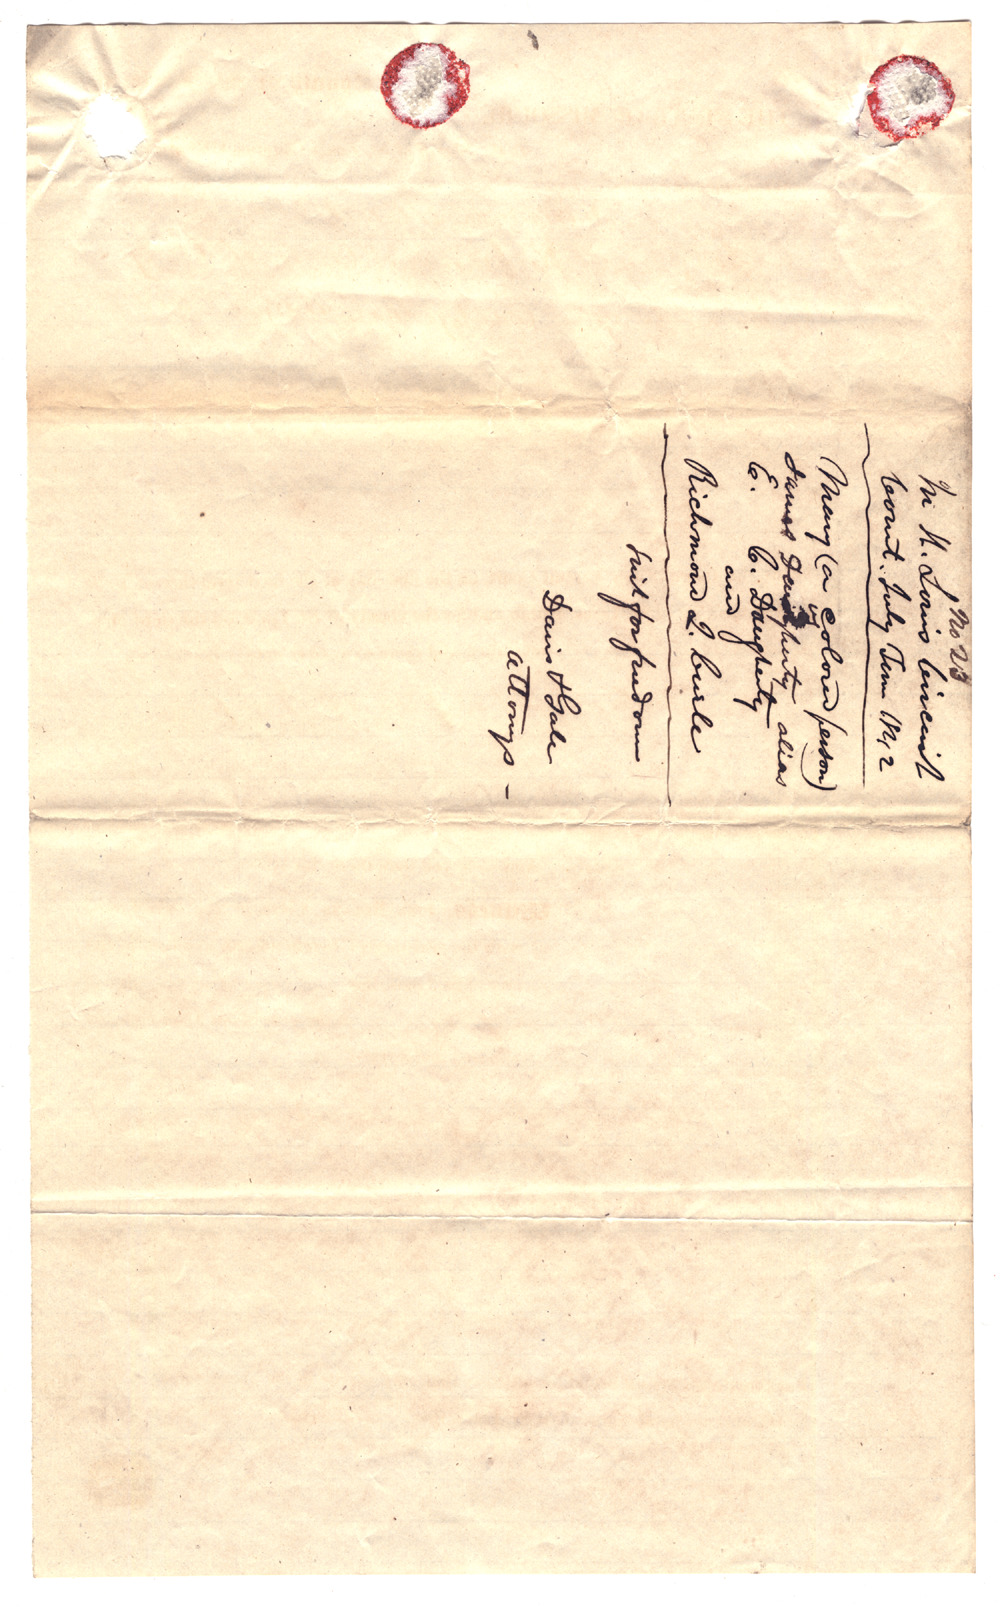 No 23
In St. Louis Circuit
Court. July Term 1842
Mary (a colored person)
vs
James Daugherty alias
E. C. Daugherty
and
Richmond J. Curle
Suit for freedom
Davis & Gale
Attorneys –